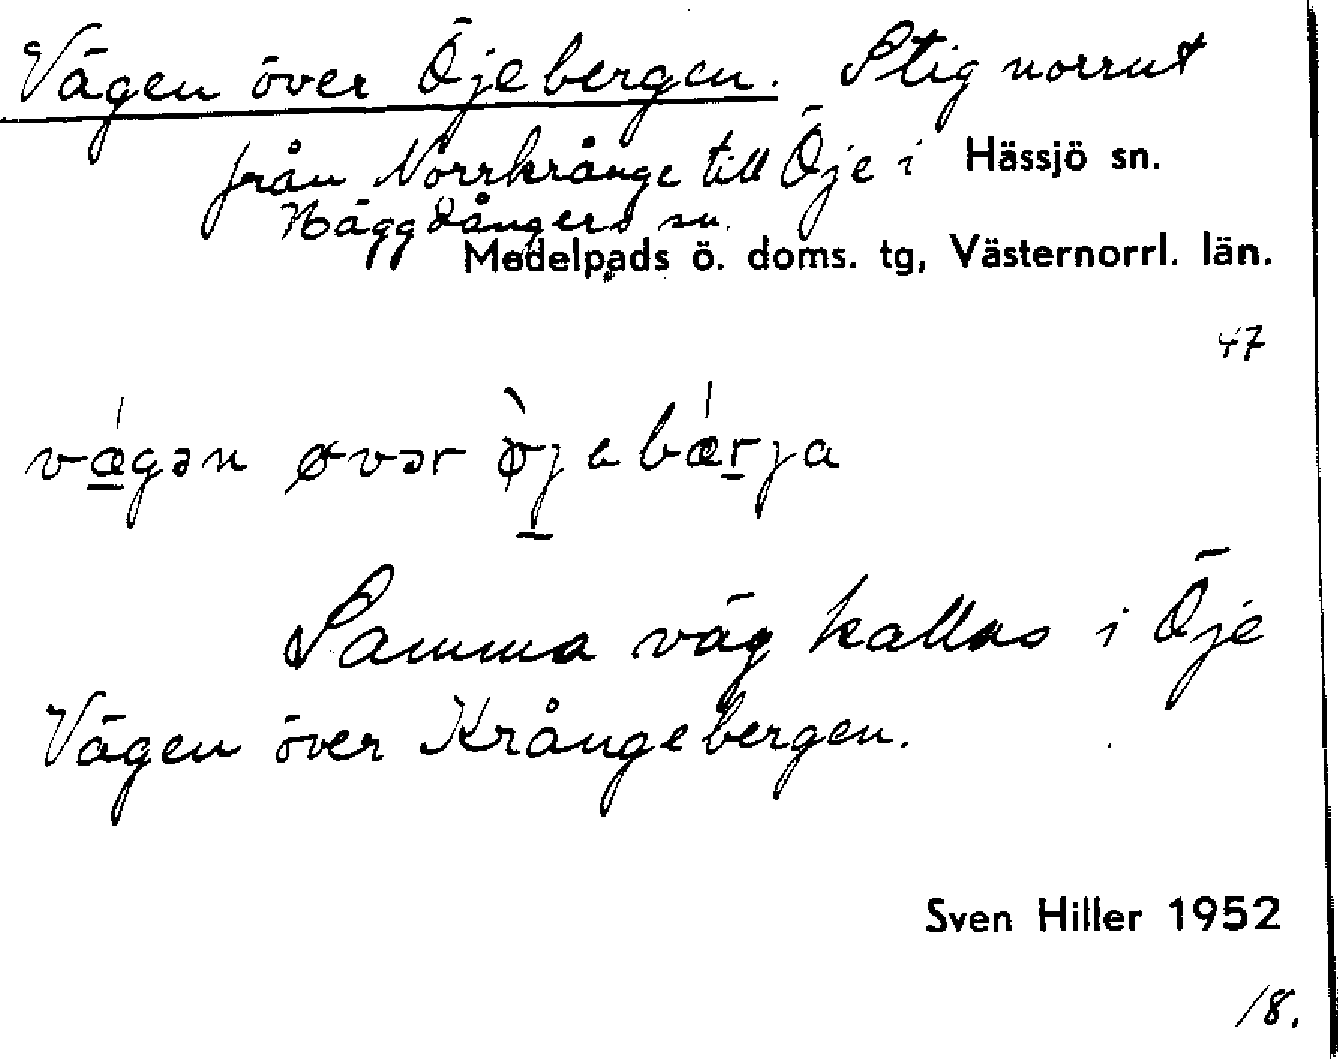 Vägen över Öjebergen. Stig norrut
från Norrkrånge till Öje i Hässjö sn.
Häggdångers sn.
Medelpads ö. doms. tg, Västernorrl. län.
47
vǽgən øvər ø̀jabǽrja
Samma väg kallas i Öje
Vägen över Krångebergen.
Sven Hiller 1952
18.